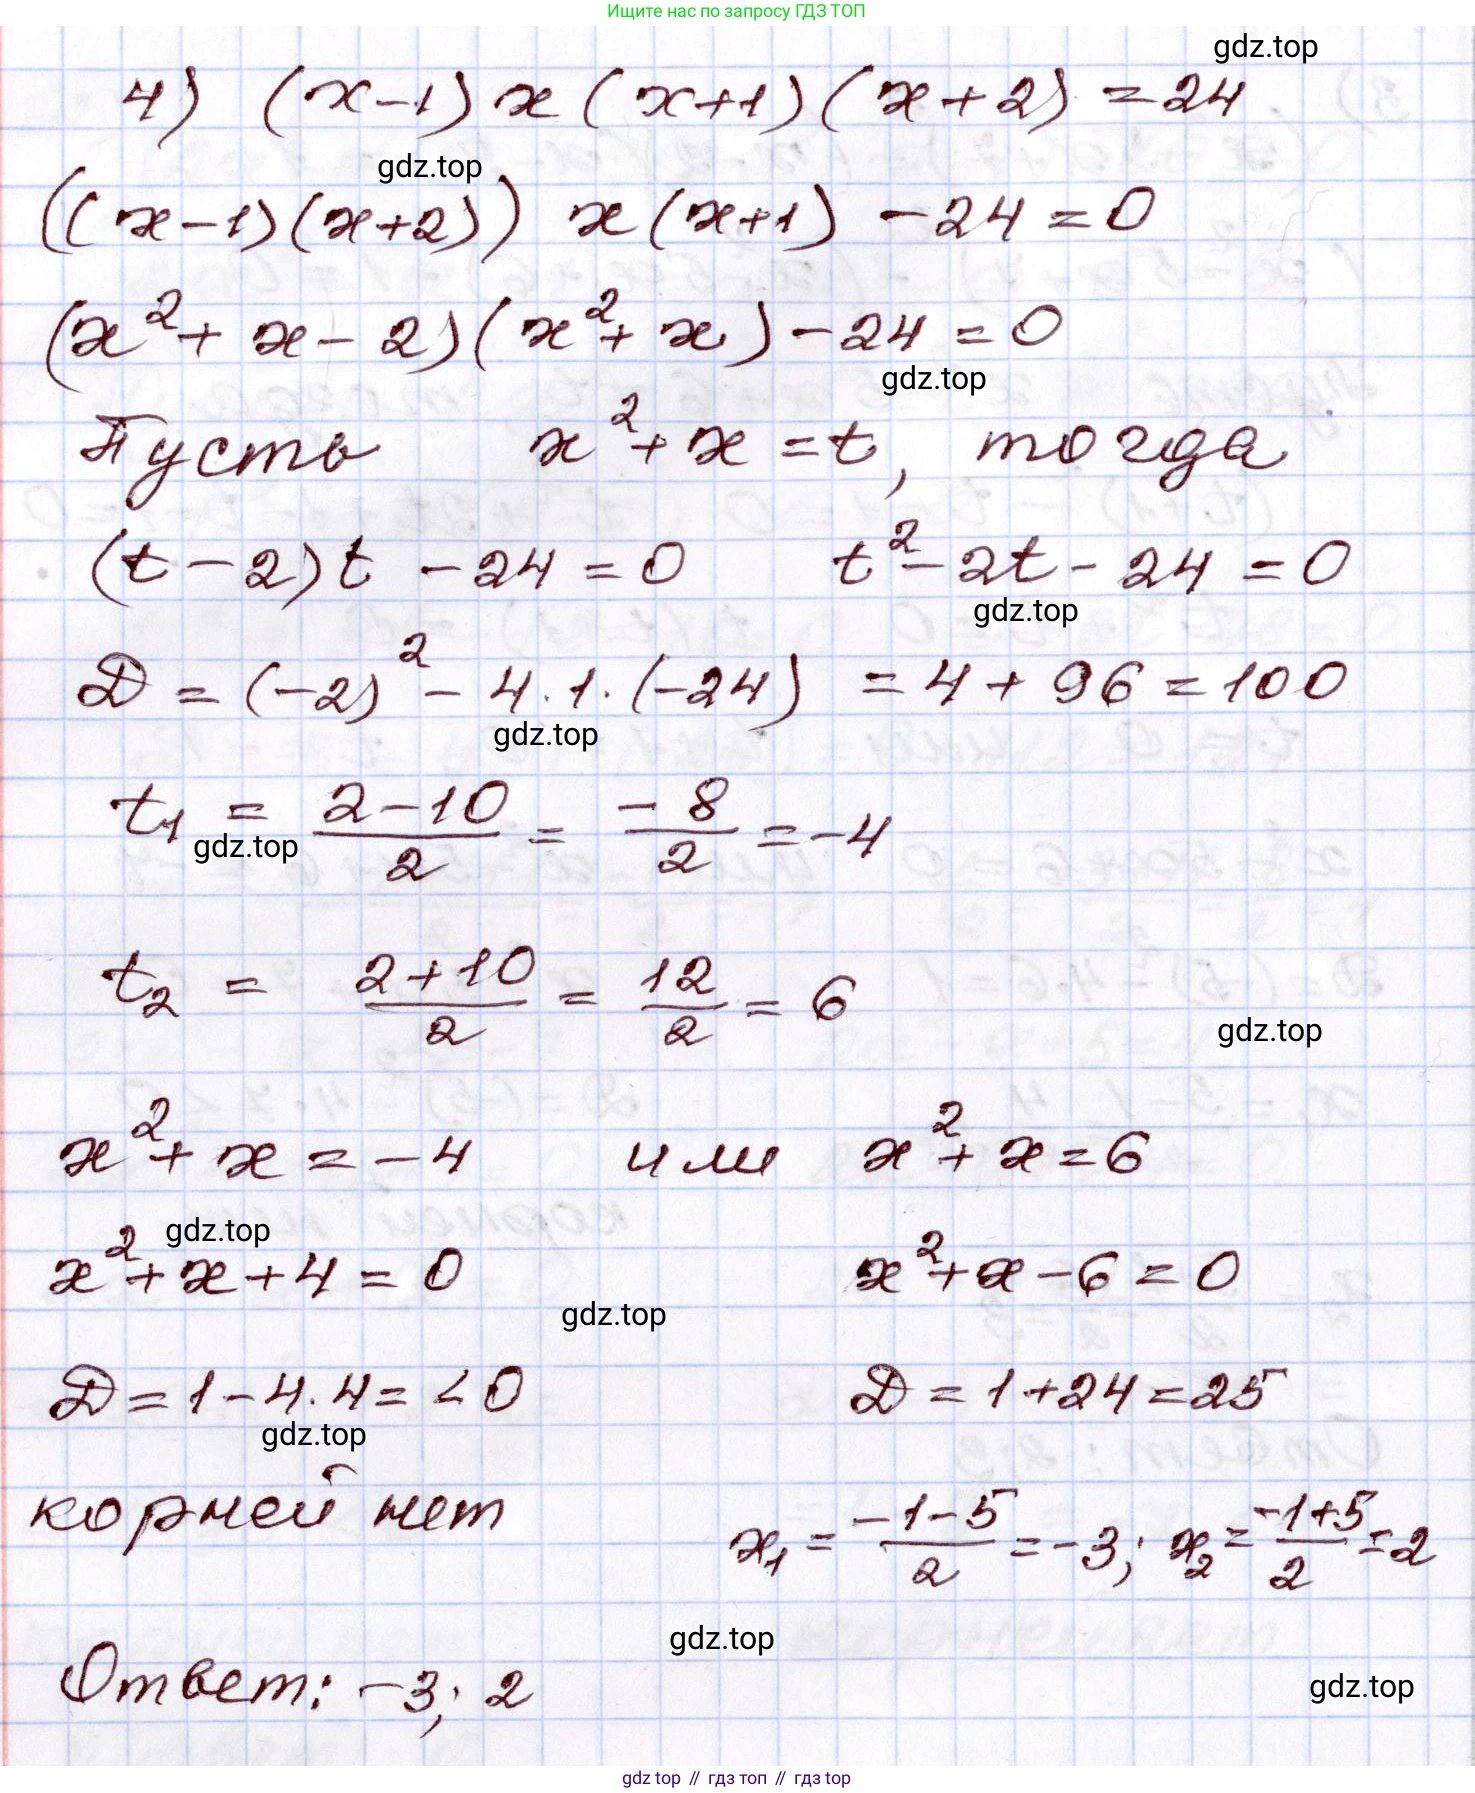 Ищите нас по запросу ГДЗ ТОП
gdz.top
4) (x-1) x (x+1) (x+2) = 24
gdz.top
((x-1)(x+2)) x (x+1) - 24 = 0
(x²+x-2)(x²+x) - 24 = 0
gdz.top
Пусть x²+x = t, тогда
(t-2)t - 24 = 0 t²-2t-24 = 0
gdz.top
D = (-2)² - 4·1·(-24) = 4+96 = 100
gdz.top
t₁ = (2-10)/2 = -8/2 = -4
gdz.top
t₂ = (2+10)/2 = 12/2 = 6
gdz.top
x²+x = -4 или x²+x = 6
gdz.top
x²+x+4 = 0 x²+x-6 = 0
gdz.top
D = 1-4·4 = <0 D = 1+24 = 25
gdz.top
корней нет x₁ = (-1-5)/2 = -3; x₂ = (-1+5)/2 = 2
gdz.top
Ответ: -3; 2
gdz.top
gdz top // гдз топ // гдз top